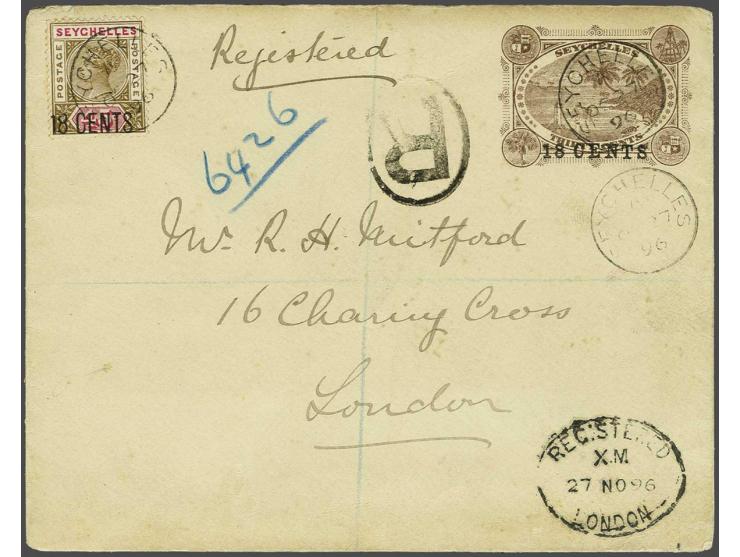 SEYCHELLES
POSTAGE
POSTAGE
18 CENTS
Registered
6426
R
SEYCHELLES
SEYCHELLES
96
18 CENTS
SEYCHELLES
96
Mr. R. H. Mitford
16 Charing Cross
London
REGISTERED
X.M
27 NO 96
LONDON